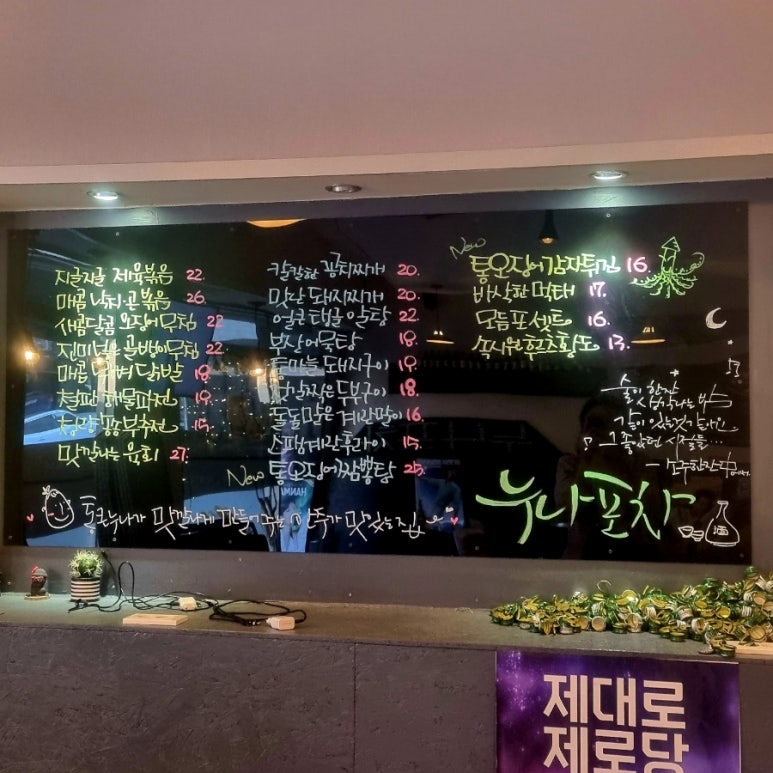 지글지글 제육볶음 22.
매콤 낙지볶음 26.
새콤달콤 오징어무침 22
골뱅이무침 22.
매콤 닭발 18.
철판 해물파전 19.
부추전 15.
맛깔나는 육회 27.
칼칼한 꽁치찌개 20.
돼지찌개 20.
얼큰 알탕 22.
부산어묵탕 18.
통마늘 돼지구이 19.
두부구이 18.
돌돌말은 계란말이 16
스팸계란후라이 15.
New 통오징어짬뽕탕 25.
통큰누나가 맛깔나게 만들어주는 안주가 맛있는집
New
통오징어감자튀김 16.
바삭한 먹태 17.
모듬포셋트 16.
속시원후르츠황도 13.
술이 한잔
생각나는 밤
같이 있는것 같아요
그 좋았던 시절들...
- 소주한잔 中에서
누나포차
酒
제대로
제로당